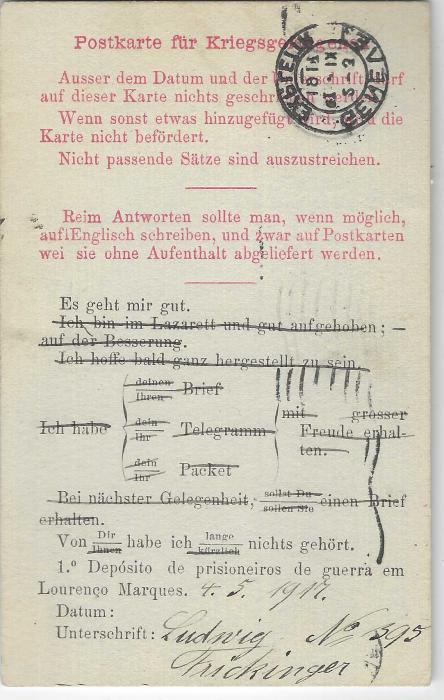 Postkarte für Kriegsgefangene.
Ausser dem Datum und der Unterschrift darf
auf dieser Karte nichts geschrieben werden.
Wenn sonst etwas hinzugefügt wird, wird die
Karte nicht befördert.
Nicht passende Sätze sind auszustreichen.
Reim Antworten sollte man, wenn möglich,
auf Englisch schreiben, und zwar auf Postkarten
wei sie ohne Aufenthalt abgeliefert werden.
Es geht mir gut.
Ich bin im Lazarett und gut aufgehoben; —
auf der Besserung.
Ich hoffe bald ganz hergestellt zu sein.
Ich habe
deinen
Ihren
Brief
dein
Ihr
Telegramm
dein
Ihr
Packet
mit grosser
Freude erhal-
ten.
Bei nächster Gelegenheit, sollst Du
sollen Sie
einen Brief
erhalten.
Von Dir
Ihnen
habe ich lange
kürzlich
nichts gehört.
1.º Depósito de prisioneiros de guerra em
Lourenço Marques. 4. 5. 1917.
Datum:
Unterschrift: Ludwig No 395